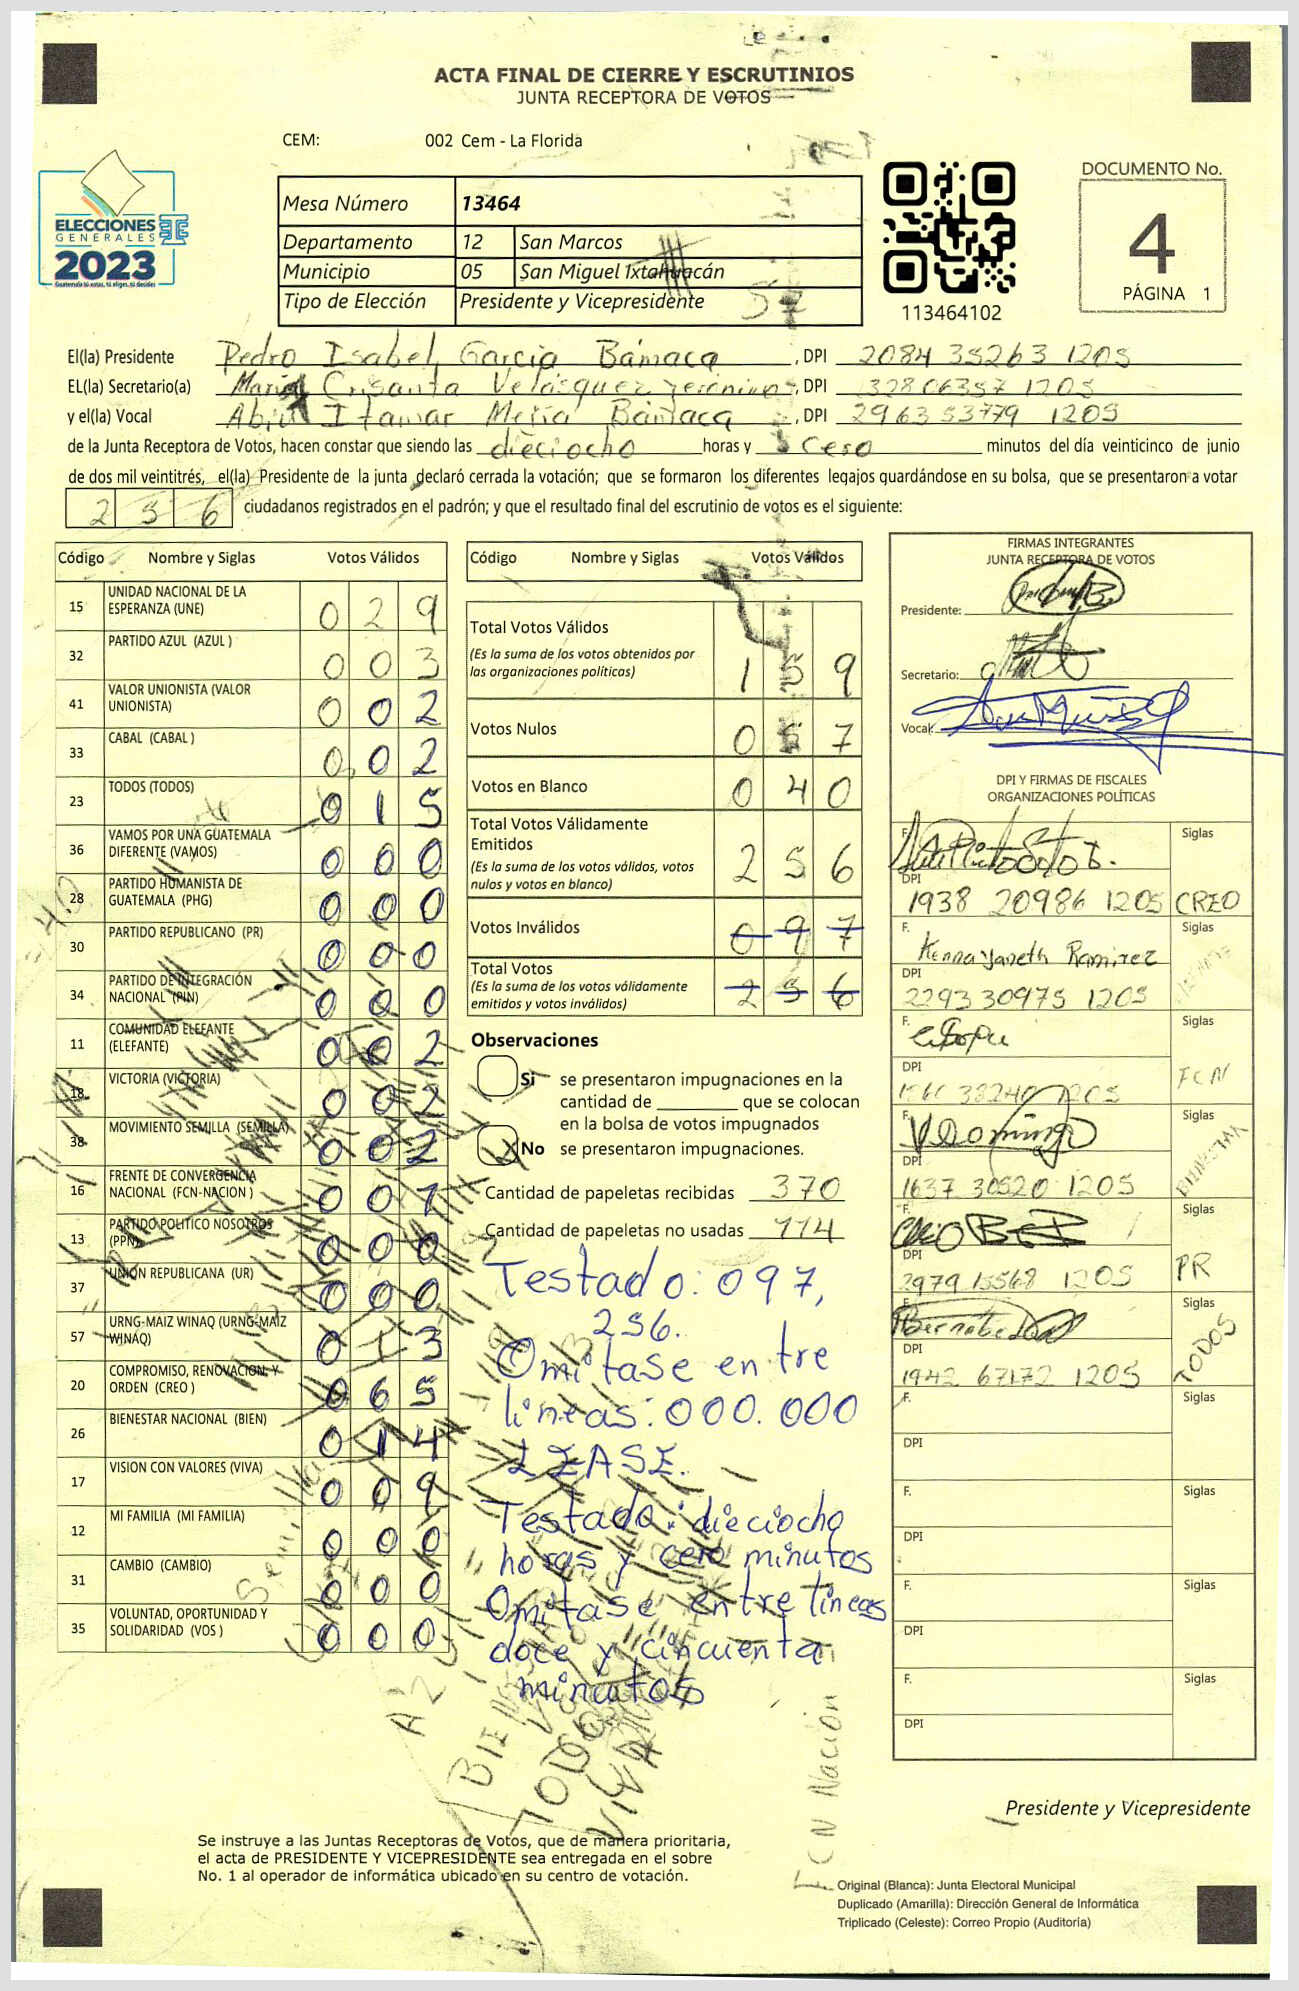 ACTA FINAL DE CIERRE Y ESCRUTINIOS
JUNTA RECEPTORA DE VOTOS
CEM: 002 Cem - La Florida
ELECCIONES
GENERALES
2023
Guatemala tú votas, tú eliges, tú decides
Mesa Número 13464
Departamento 12 San Marcos
Municipio 05 San Miguel Ixtahuacán
Tipo de Elección Presidente y Vicepresidente
57
113464102
DOCUMENTO No.
4
PÁGINA 1
El(la) Presidente Pedro Isabel Garcia Bámaca, DPI 2084 35263 1205
EL(la) Secretario(a) Crisanta Velásquez, DPI 1205
y el(la) Vocal Itamar Bámaca, DPI 2963 53779 1205
de la Junta Receptora de Votos, hacen constar que siendo las dieciocho horas y cero minutos del día veinticinco de junio
de dos mil veintitrés, el(la) Presidente de la junta declaró cerrada la votación; que se formaron los diferentes legajos guardándose en su bolsa, que se presentaron a votar
256 ciudadanos registrados en el padrón; y que el resultado final del escrutinio de votos es el siguiente:
Código Nombre y Siglas Votos Válidos
15 UNIDAD NACIONAL DE LA ESPERANZA (UNE) 029
32 PARTIDO AZUL (AZUL ) 003
41 VALOR UNIONISTA (VALOR UNIONISTA) 002
33 CABAL (CABAL ) 002
23 TODOS (TODOS) 015
36 VAMOS POR UNA GUATEMALA DIFERENTE (VAMOS) 000
28 PARTIDO HUMANISTA DE GUATEMALA (PHG) 000
30 PARTIDO REPUBLICANO (PR) 000
34 PARTIDO DE INTEGRACIÓN NACIONAL (PIN) 000
11 COMUNIDAD ELEFANTE (ELEFANTE) 002
18 VICTORIA (VICTORIA) 002
38 MOVIMIENTO SEMILLA (SEMILLA) 002
16 FRENTE DE CONVERGENCIA NACIONAL (FCN-NACION ) 001
13 PARTIDO POLITICO NOSOTROS (PPN) 000
37 UNION REPUBLICANA (UR) 000
57 URNG-MAIZ WINAQ (URNG-MAIZ WINAQ) 013
20 COMPROMISO, RENOVACION, Y ORDEN (CREO ) 065
26 BIENESTAR NACIONAL (BIEN) 014
17 VISION CON VALORES (VIVA) 009
12 MI FAMILIA (MI FAMILIA) 000
31 CAMBIO (CAMBIO) 000
35 VOLUNTAD, OPORTUNIDAD Y SOLIDARIDAD (VOS ) 000
Código Nombre y Siglas Votos Válidos
Total Votos Válidos 159
(Es la suma de los votos obtenidos por
las organizaciones políticas)
Votos Nulos 057
Votos en Blanco 040
Total Votos Válidamente
Emitidos 256
(Es la suma de los votos válidos, votos
nulos y votos en blanco)
Votos Inválidos 097
Total Votos 256
(Es la suma de los votos válidamente
emitidos y votos inválidos)
Observaciones
Si se presentaron impugnaciones en la
cantidad de ________ que se colocan
en la bolsa de votos impugnados
No se presentaron impugnaciones.
Cantidad de papeletas recibidas 370
Cantidad de papeletas no usadas 114
Testado: 097,
256.
Omitase entre
lineas: 000. 000
LEASE.
Testado: dieciocho
horas y cero minutos
Omitase entre lineas
doce y cincuenta
minutos
FIRMAS INTEGRANTES
JUNTA RECEPTORA DE VOTOS
Presidente:
Secretario:
Vocal:
DPI Y FIRMAS DE FISCALES
ORGANIZACIONES POLÍTICAS
F. Siglas
DPI
1938 20986 1205 CREO
F. Yaneth Ramirez Siglas
DPI
2293 30975 1205
F. Siglas
DPI
1205 FCN
F. VDomingo Siglas
DPI
1637 30520 1205 BIENESTAR
F. Siglas
DPI
2979 15568 1205 PR
F. Siglas
DPI
1942 67172 1205 TODOS
F. Siglas
DPI
F. Siglas
DPI
F. Siglas
DPI
F. Siglas
DPI
Semilla
AZUL
BIENESTAR
TODOS
VIVA
FCN Nación
Presidente y Vicepresidente
Se instruye a las Juntas Receptoras de Votos, que de manera prioritaria,
el acta de PRESIDENTE Y VICEPRESIDENTE sea entregada en el sobre
No. 1 al operador de informática ubicado en su centro de votación.
Original (Blanca): Junta Electoral Municipal
Duplicado (Amarilla): Dirección General de Informática
Triplicado (Celeste): Correo Propio (Auditoría)